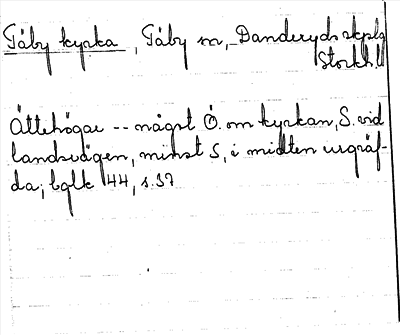 Täby kyrka, Täby sn, Danderyds skplg
Stockh. l.
Ättehögar -- något Ö. om kyrkan, S. vid
landsvägen, minst 5, i midten urgräf-
da; bglk 44, s. 37